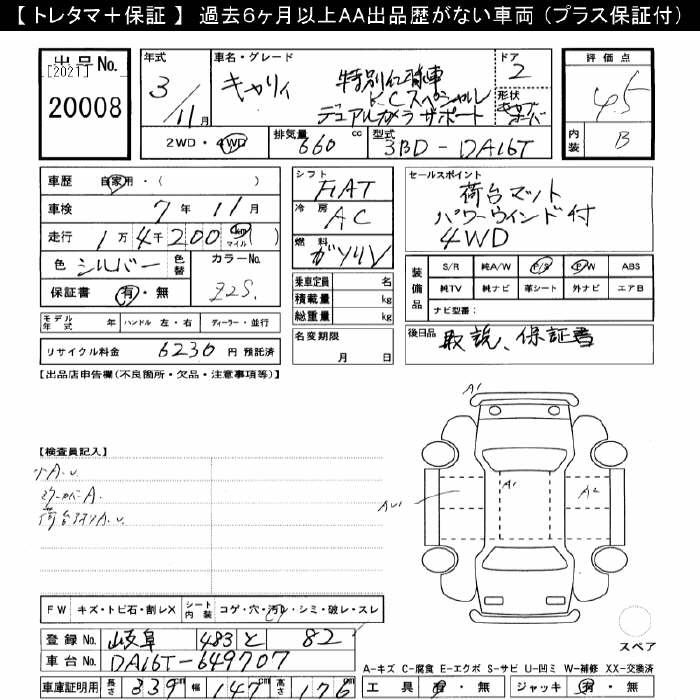 【 トレタマ＋保証 】 過去6ヶ月以上AA出品歴がない車両 (プラス保証付)
出品No.
[2021]
20008
年式
3/11月
車名・グレード
キャリイ
特別仕様車
KCスペシャル
デュアルカメラサポート
ドア
2
形状
2WD・4WD
排気量 660 cc
型式 3BD-DA16T
評価点
4.5
内装 B
車歴 自家用・( )
車検 7年11月
走行 1万4千200 km マイル ( )
色 シルバー 色替
カラーNo.
Z2S.
保証書 有・無
モデル年式 年 ハンドル 左・右 ディーラー・並行
リサイクル料金 6230 円 預託済
シフト FIAT
冷房 AC
燃料 ガソリン
乗車定員 名
積載量 kg
総重量 kg
名変期限
月 日
セールスポイント
荷台マット
パワーウインド付
4WD
装備品
S/R 純A/W P/S P/W ABS
純TV 純ナビ 革シート 外ナビ エアB
ナビ型番:
後日品 取説、保証書
【出品店申告欄(不良箇所・欠品・注意事項等)】
【検査員記入】
小A.U.
荷台アオリA.U.
A1
A1
AU1
A2
FW キズ・トビ石・割レX シート内装 コゲ・穴・汚レ・シミ・破レ・スレ
登録No. 岐阜 483 と 82
車台No. DA16T-649707
車庫証明用 長さ 339cm 幅 147cm 高さ 176cm
スペア
A-キズ C-腐食 E-エクボ S-サビ U-凹ミ W-補修 XX-交換済
工具 有・無 ジャッキ 有・無